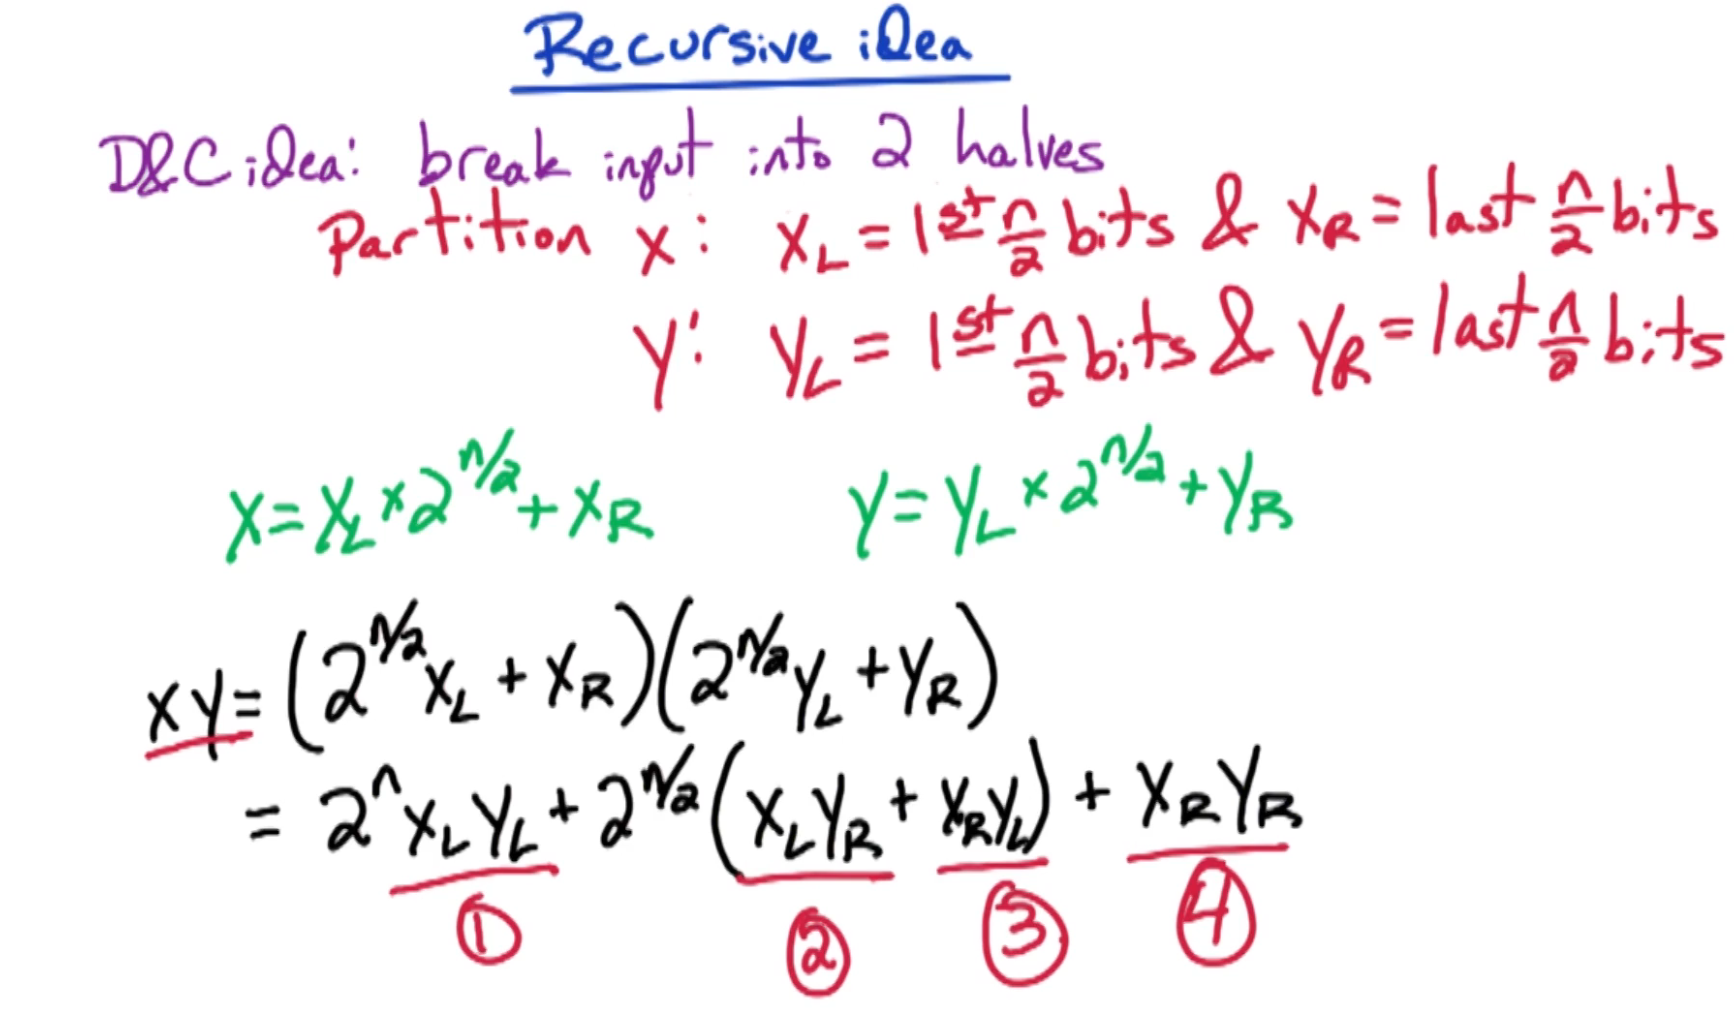 Recursive idea
D&C idea: break input into 2 halves
Partition x: x_L = 1st n/2 bits & x_R = last n/2 bits
y: y_L = 1st n/2 bits & y_R = last n/2 bits
x = x_L × 2^(n/2) + x_R    y = y_L × 2^(n/2) + y_R
xy = (2^(n/2) x_L + x_R)(2^(n/2) y_L + y_R)
= 2^n x_L y_L + 2^(n/2) (x_L y_R + x_R y_L) + x_R y_R
① ② ③ ④